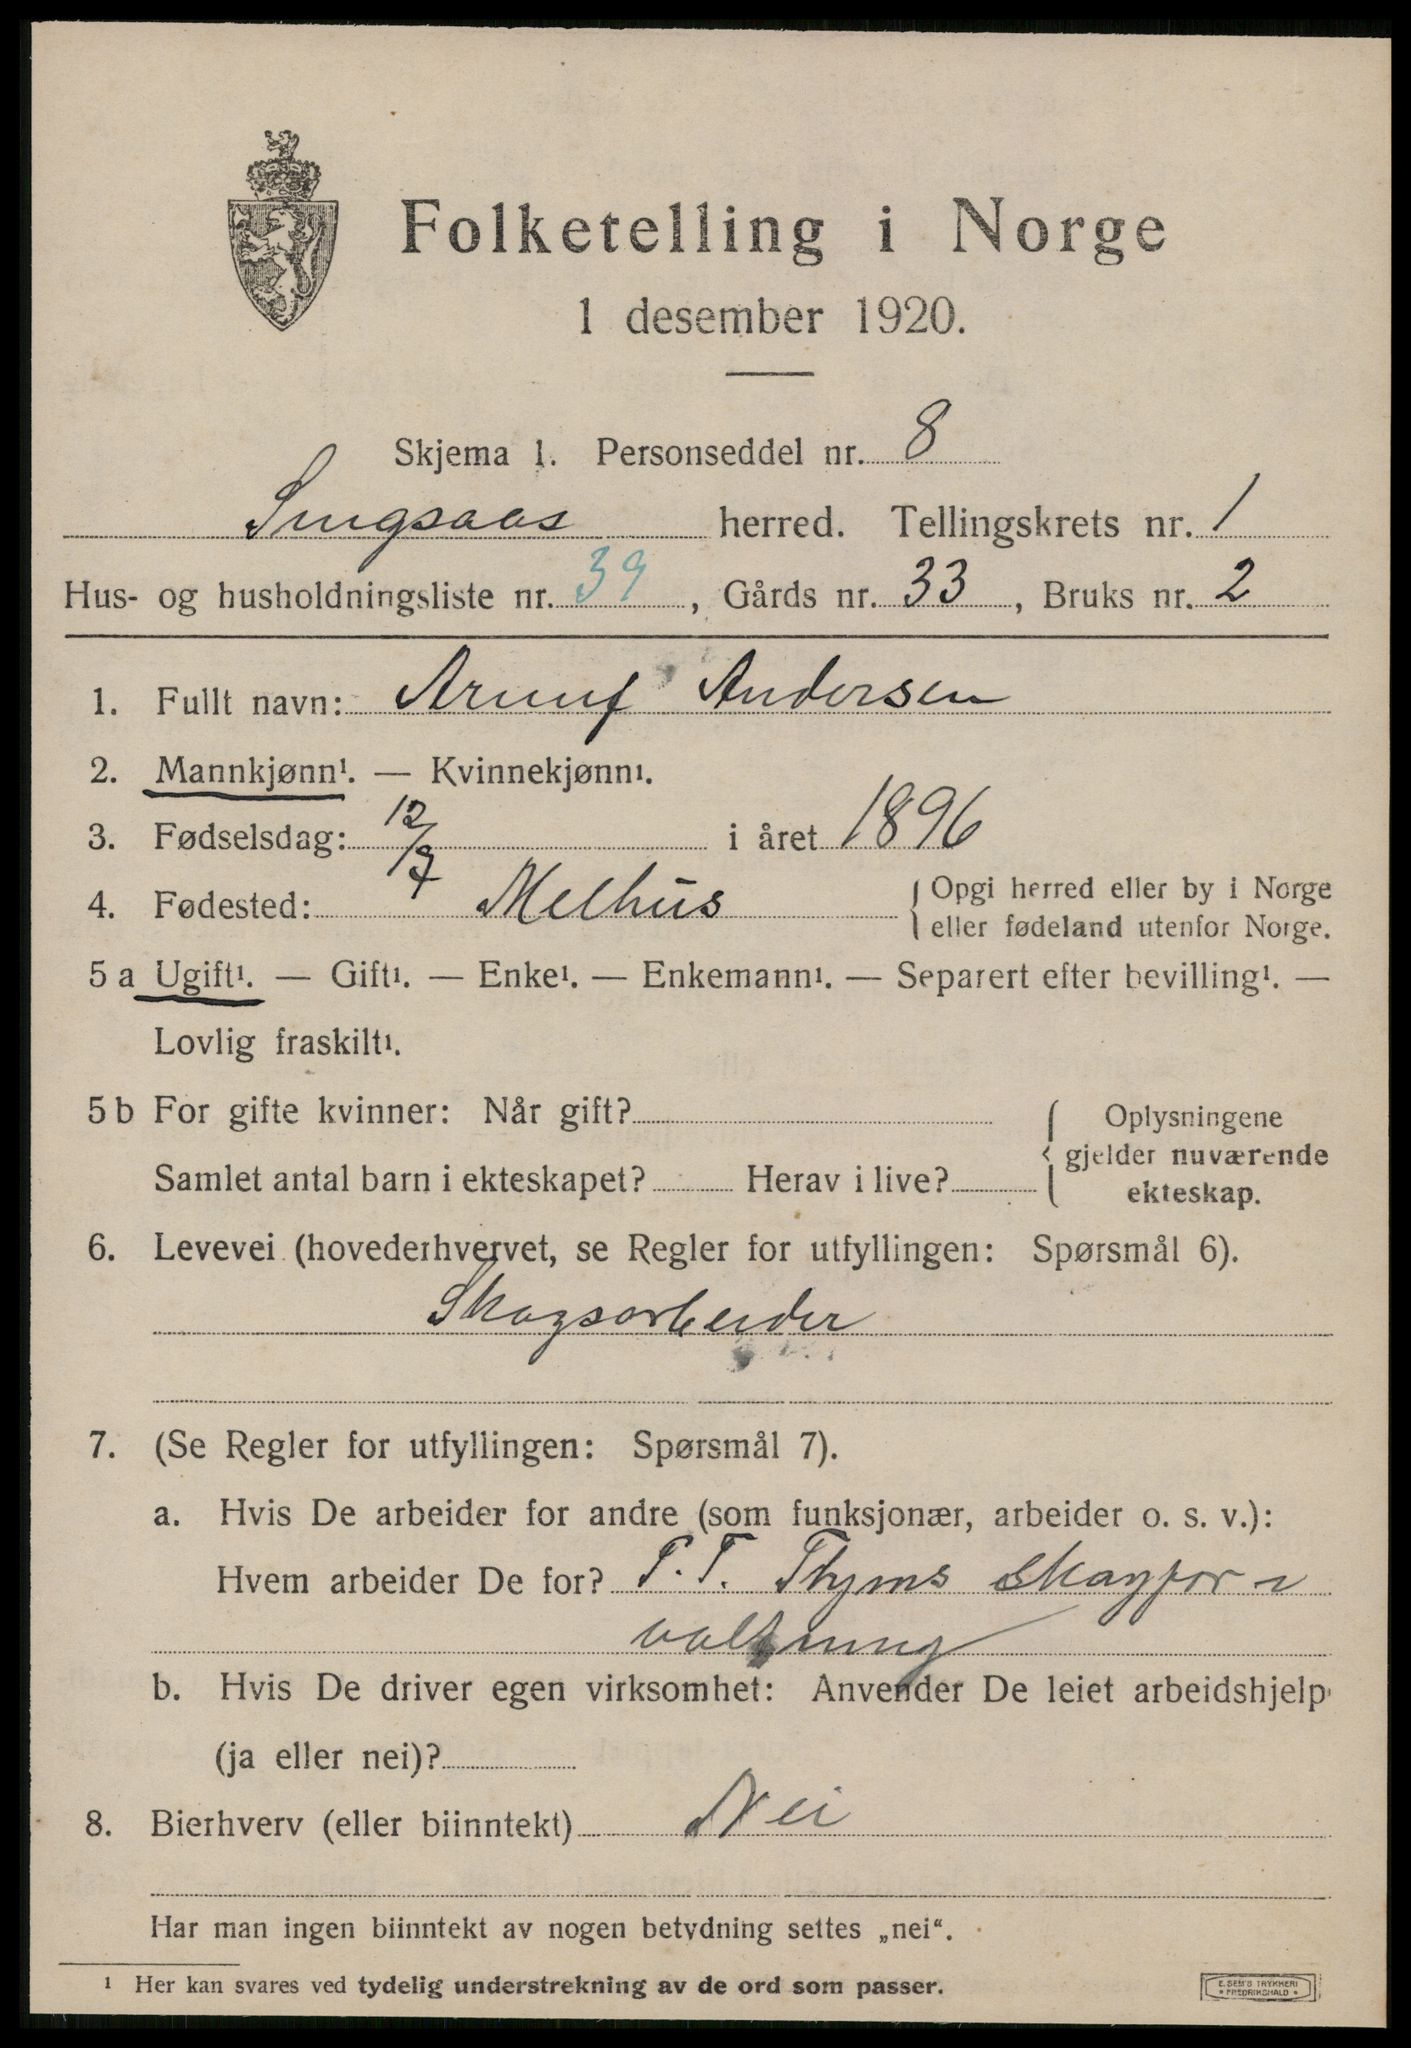 Folketelling i Norge
1 desember 1920.
Skjema 1. Personseddel nr. 8
Singsaas herred. Tellingskrets nr. 1
Hus- og husholdningsliste nr. 39, Gårds nr. 33, Bruks nr. 2
1. Fullt navn: Arnulf Andersen
2. Mannkjønn¹. — Kvinnekjønn¹.
3. Fødselsdag: 12/7 i året 1896
4. Fødested: Melhus { Opgi herred eller by i Norge
eller fødeland utenfor Norge.
5 a Ugift¹. — Gift¹. — Enke¹. — Enkemann¹. — Separert efter bevilling¹. —
Lovlig fraskilt¹.
5 b For gifte kvinner: Når gift?
Samlet antal barn i ekteskapet? Herav i live?
{ Oplysningene
gjelder nuværende
ekteskap.
6. Levevei (hovederhvervet, se Regler for utfyllingen: Spørsmål 6).
Skogsarbeider
7. (Se Regler for utfyllingen: Spørsmål 7).
a. Hvis De arbeider for andre (som funksjonær, arbeider o. s. v.):
Hvem arbeider De for? T. T. Thyms skogfor-
valtning
b. Hvis De driver egen virksomhet: Anvender De leiet arbeidshjelp
(ja eller nei)?
8. Bierhverv (eller biinntekt) Nei
Har man ingen biinntekt av nogen betydning settes „nei“.
¹ Her kan svares ved tydelig understrekning av de ord som passer.
E. SEM'S TRYKKERI
• FREDRIKSHALD •